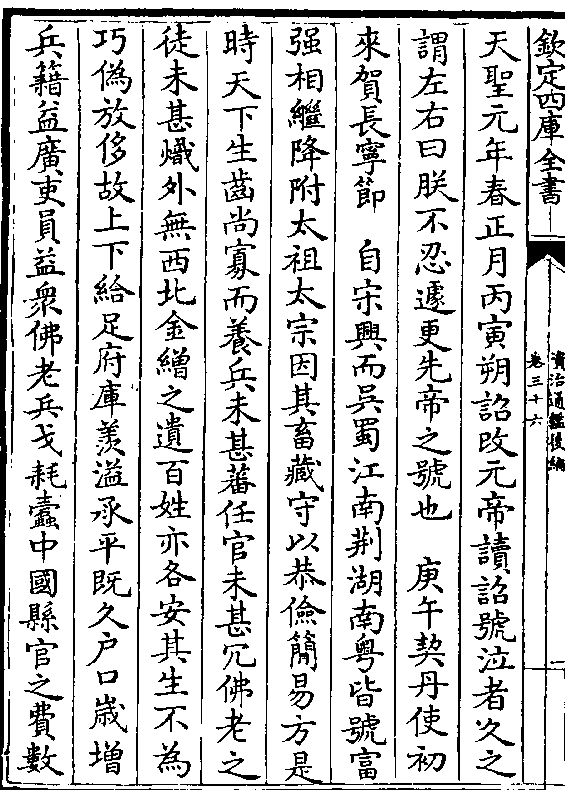 欽定四庫全書
資治通鑑後編
卷三十六
天聖元年春正月丙寅朔詔改元帝讀詔號泣者久之
謂左右曰朕不忍遽更先帝之號也　庚午契丹使初
來賀長寧節　自宋興而吳蜀江南荆湖南粵皆號富
强相繼降附太祖太宗因其畜藏守以恭儉簡易方是
時天下生齒尚寡而養兵未甚蕃任官未甚冗佛老之
徒未甚熾外無西北金繒之遺百姓亦各安其生不為
巧偽放侈故上下給足府庫羨溢承平既久户口嵗增
兵籍益廣吏員益衆佛老兵戈耗蠧中國縣官之費數